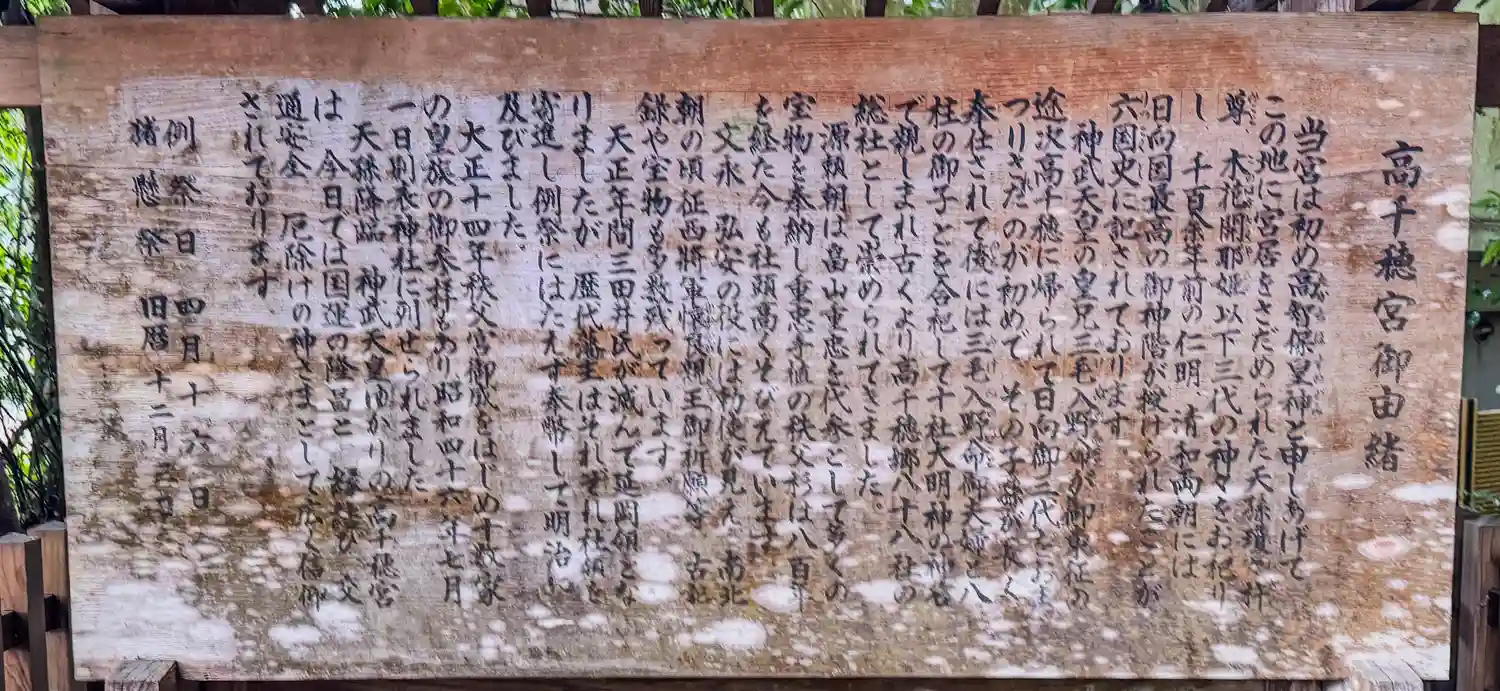 高千穂宮御由緒
当宮は初め高智保皇神と申しあげて
この地に宮居をさだめられた天孫瓊々杵
尊、木花開耶姫以下三代の神々をお祀り
し、千百余年前の仁明、清和両朝には
日向国最高の御神階が授けられたことが
六国史に記されております。
神武天皇の皇兄三毛入野命が御東征の
途次高千穂に帰られて日向御三代をおま
つりされたのが初めで、その子孫が長く
奉仕されて後には三毛入野命御夫婦と八
柱の御子とを合祀して十社大明神の神名
で親しまれ古くより高千穂郷八十八社の
総社として崇められてきました。
源頼朝は畠山重忠を代参として多くの
宝物を奉納し重忠手植の秩父杉は八百年
を経た今も社頭高くそびえています。
文永、弘安の役には勅使が見え、南北
朝の頃征西将軍懐良親王御祈願等、古記
録や宝物も多数残っています。
天正年間三田井氏が滅んで延岡領とな
りましたが、歴代藩主はそれぞれ社領を
寄進し例祭にはたえず奉幣して明治に
及びました。
大正十四年秩父宮御成をはじめ十数家
の皇族の御参拝もあり昭和四十六年七月
一日別表神社に列せられました
天孫降臨、神武天皇ゆかりの高千穂宮
は、今日では国運の隆昌と、縁結び、交
通安全、厄除けの神さまとして広く信仰
されております。
例祭日 四月十六日
猪懸祭 旧暦十二月三日